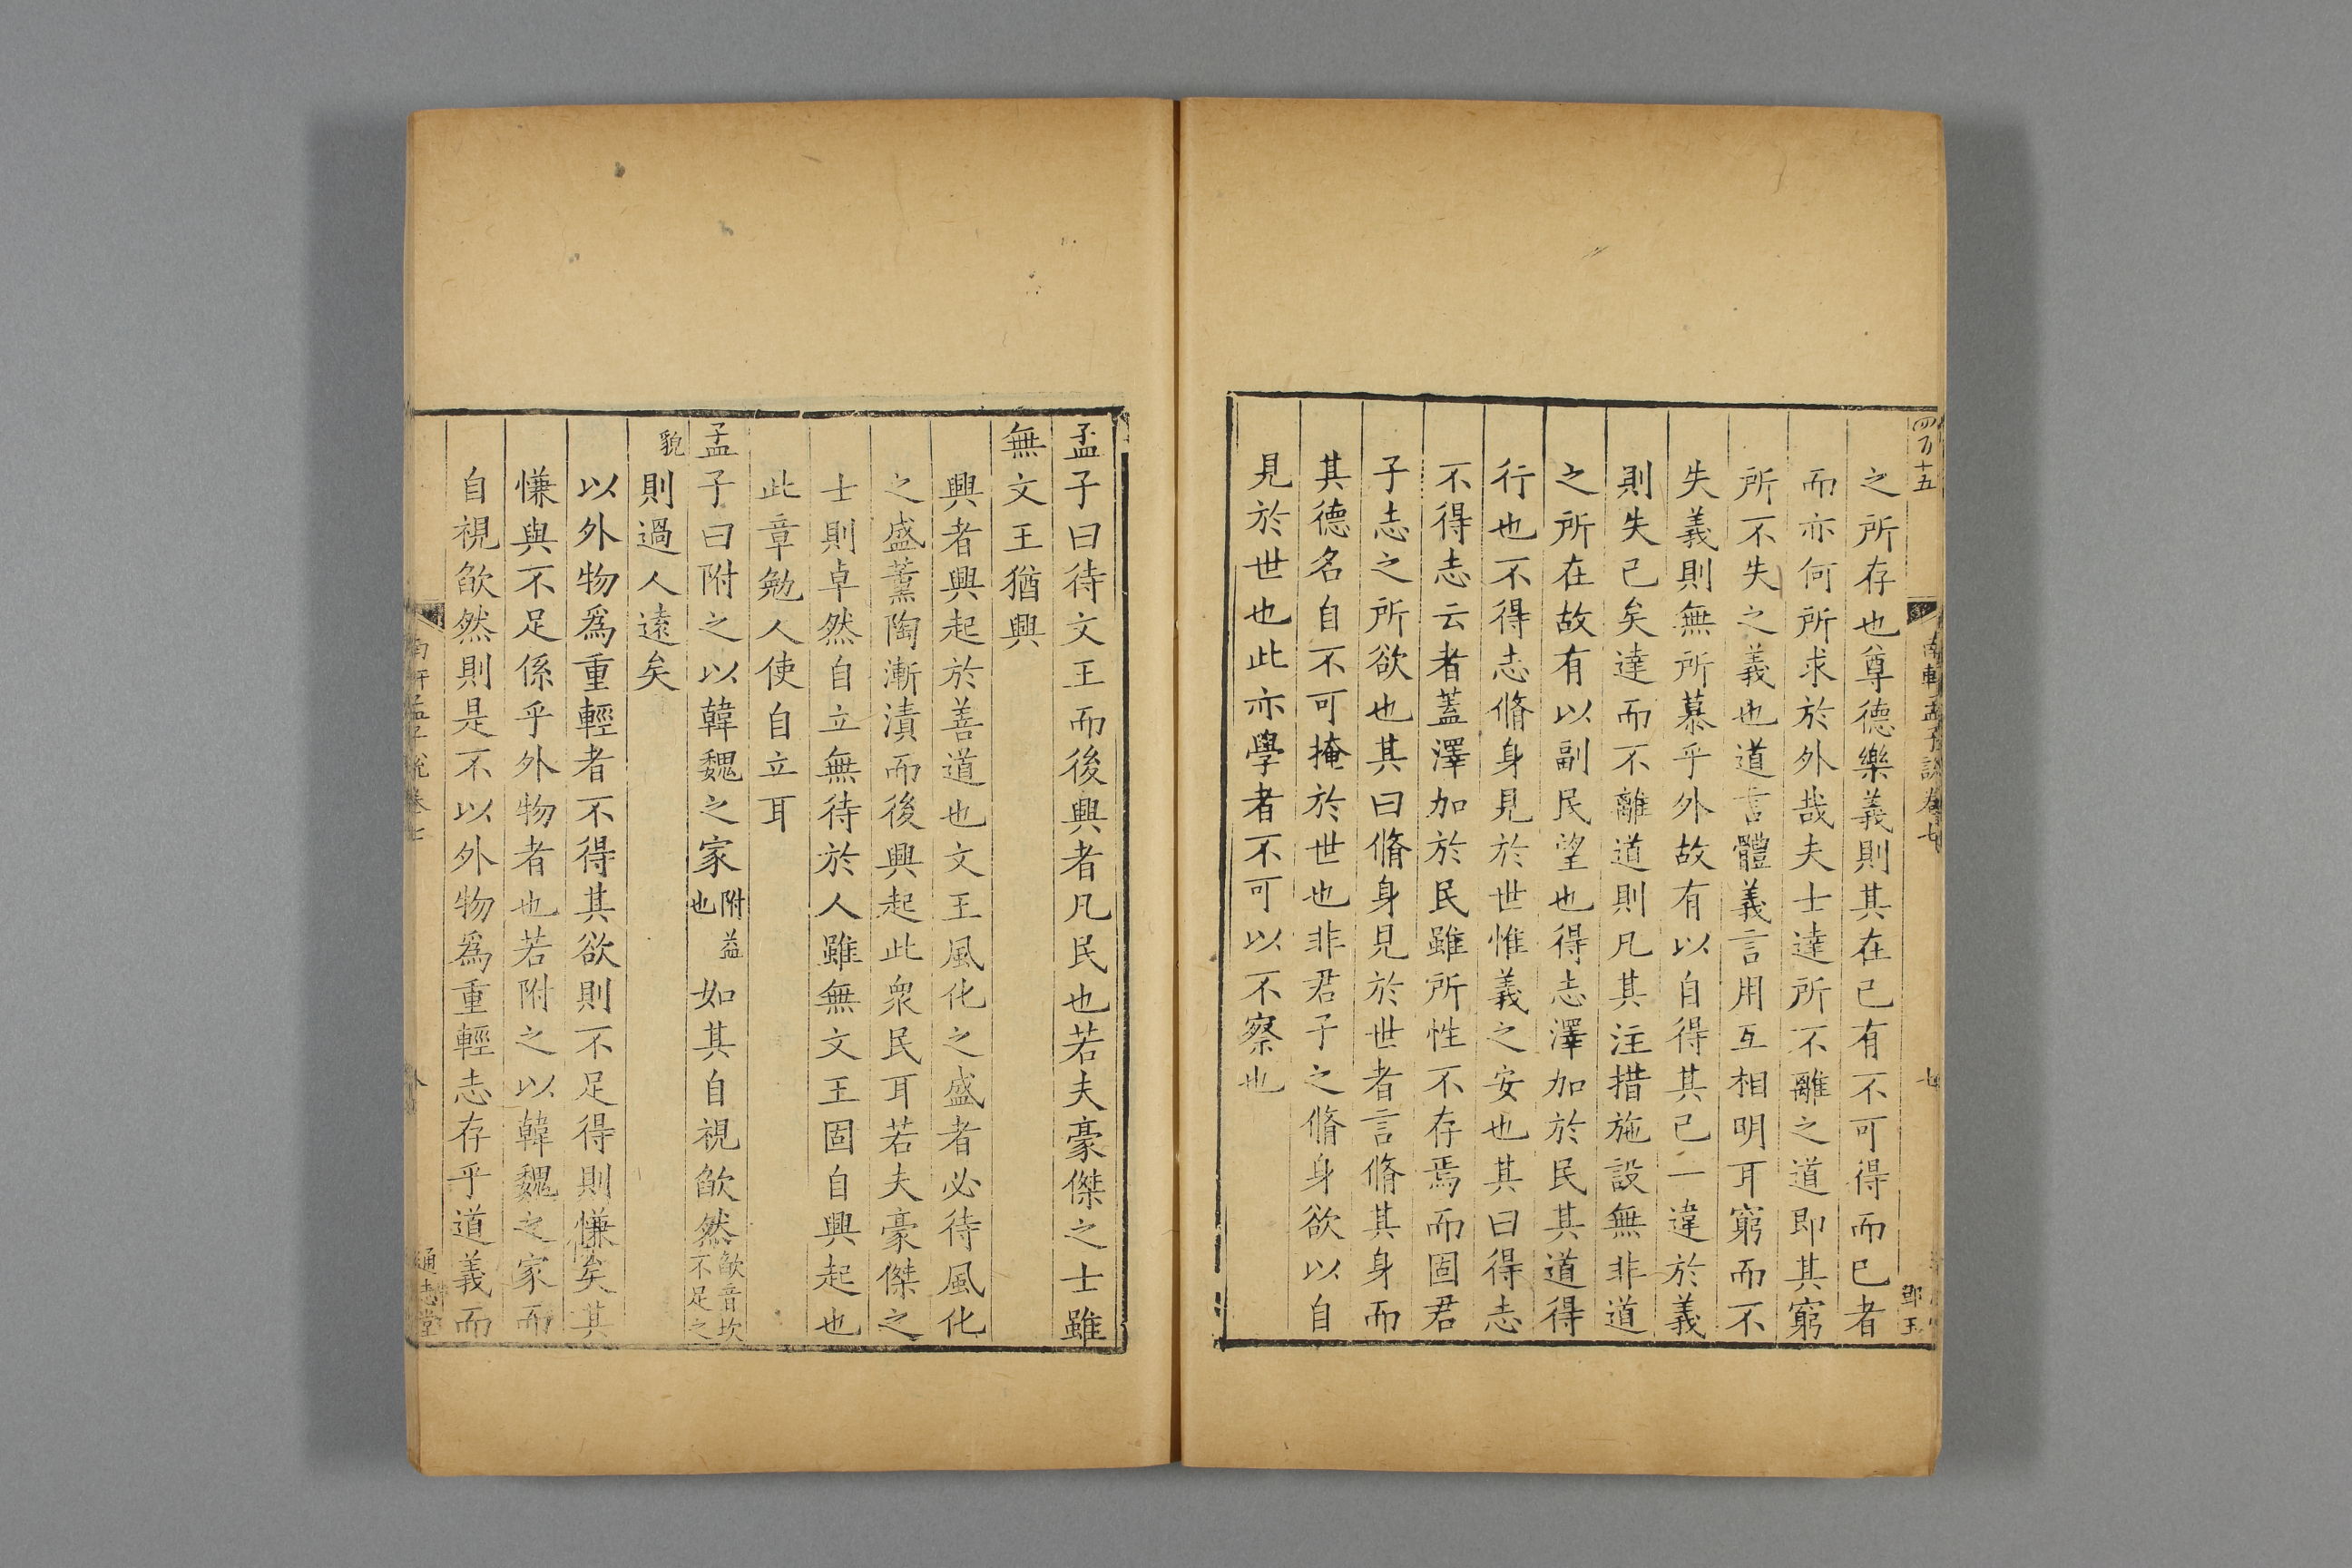 四百十五
南軒孟子說卷七
七
鄧玉
之所存也尊德樂義則其在已有不可得而已者
而亦何所求於外哉夫士達所不離之道即其窮
所不失之義也道言體義言用互相明耳窮而不
失義則無所慕乎外故有以自得其已一違於義
則失已矣達而不離道則凡其注措施設無非道
之所在故有以副民望也得志澤加於民其道得
行也不得志脩身見於世惟義之安也其曰得志
不得志云者蓋澤加於民雖所性不存焉而固君
子志之所欲也其曰脩身見於世者言脩其身而
其德名自不可掩於世也非君子之脩身欲以自
見於世也此亦學者不可以不察也
孟子曰待文王而後興者凡民也若夫豪傑之士雖
無文王猶興
興者興起於善道也文王風化之盛者必待風化
之盛薰陶漸漬而後興起此衆民耳若夫豪傑之
士則卓然自立無待於人雖無文王固自興起也
此章勉人使自立耳
孟子曰附之以韓魏之家附益也如其自視欿然欿音坎不足之
貌則過人遠矣
以外物爲重輕者不得其欲則不足得則慊矣其
慊與不足係乎外物者也若附之以韓魏之家而
自視欿然則是不以外物爲重輕志存乎道義而
南軒孟子說卷七
通志堂